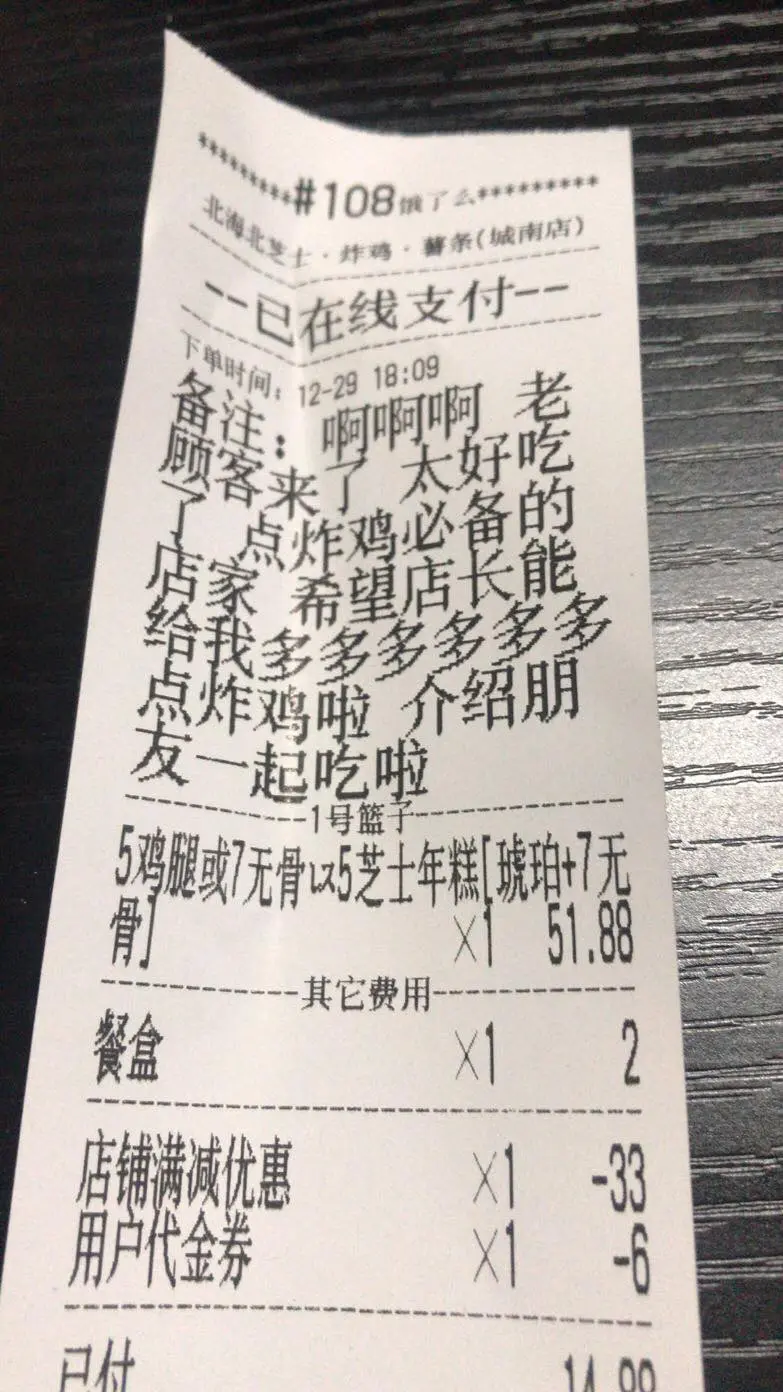 *********#108饿了么*********
北海北芝士·炸鸡·薯条(城南店)
--已在线支付--
下单时间: 12-29 18:09
备注: 啊啊啊 老
顾客来了 太好吃
了 点炸鸡必备的
店家 希望店长能
给我多多多多多多
点炸鸡啦 介绍朋
友一起吃啦
1号篮子
5鸡腿或7无骨LX5芝士年糕[琥珀+7无
骨] ×1 51.88
其它费用
餐盒 ×1 2
店铺满减优惠 ×1 -33
用户代金券 ×1 -6
已付